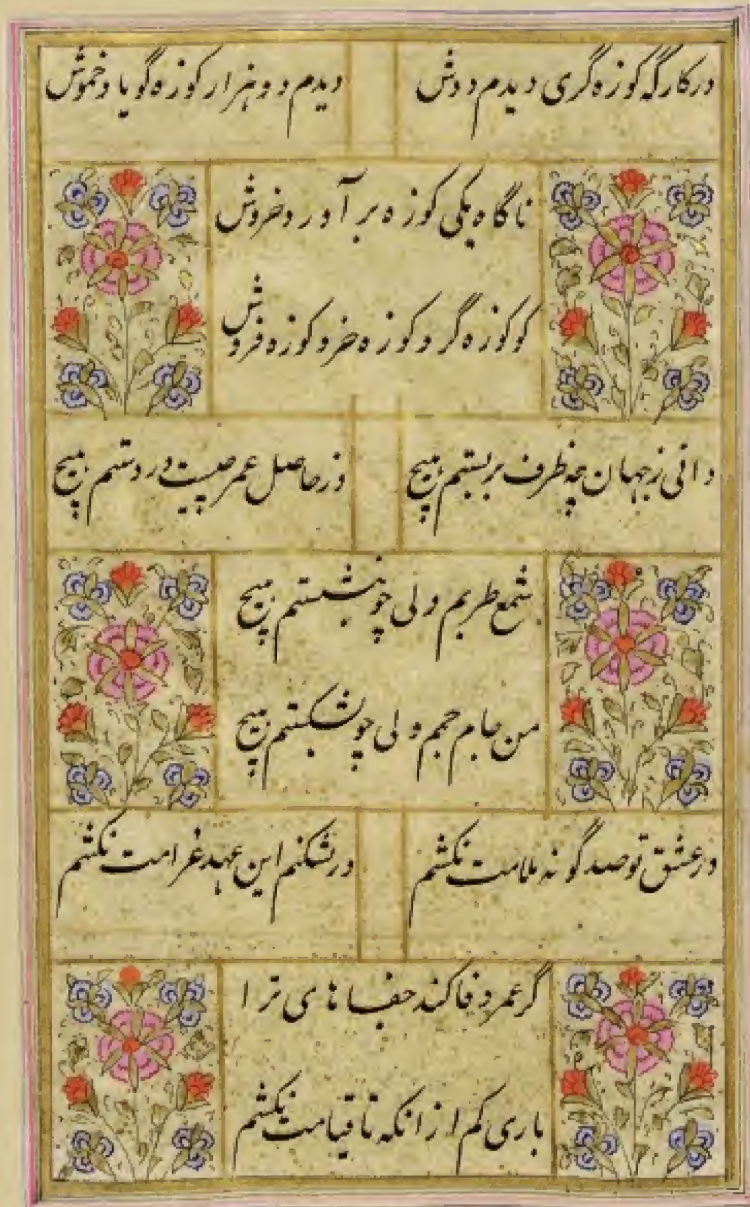 در کارگه کوزه گری دیدم دوش
دیدم دو هزار کوزه گویا و خموش
ناگاه یکی کوزه برآورد خروش
کو کوزه گر و کوزه خر و کوزه فروش
دانی ز جهان چه طرف بربستم هیچ
وز حاصل عمر چیست در دستم هیچ
شمع طربم ولی چو بنشستم هیچ
من جام جمم ولی چو بشکستم هیچ
در عشق تو صد گونه ملامت بکشم
ور بشکنم این عهد غرامت بکشم
گر عمر وفا کند جفاهای ترا
باری کم از آنکه تا قیامت بکشم